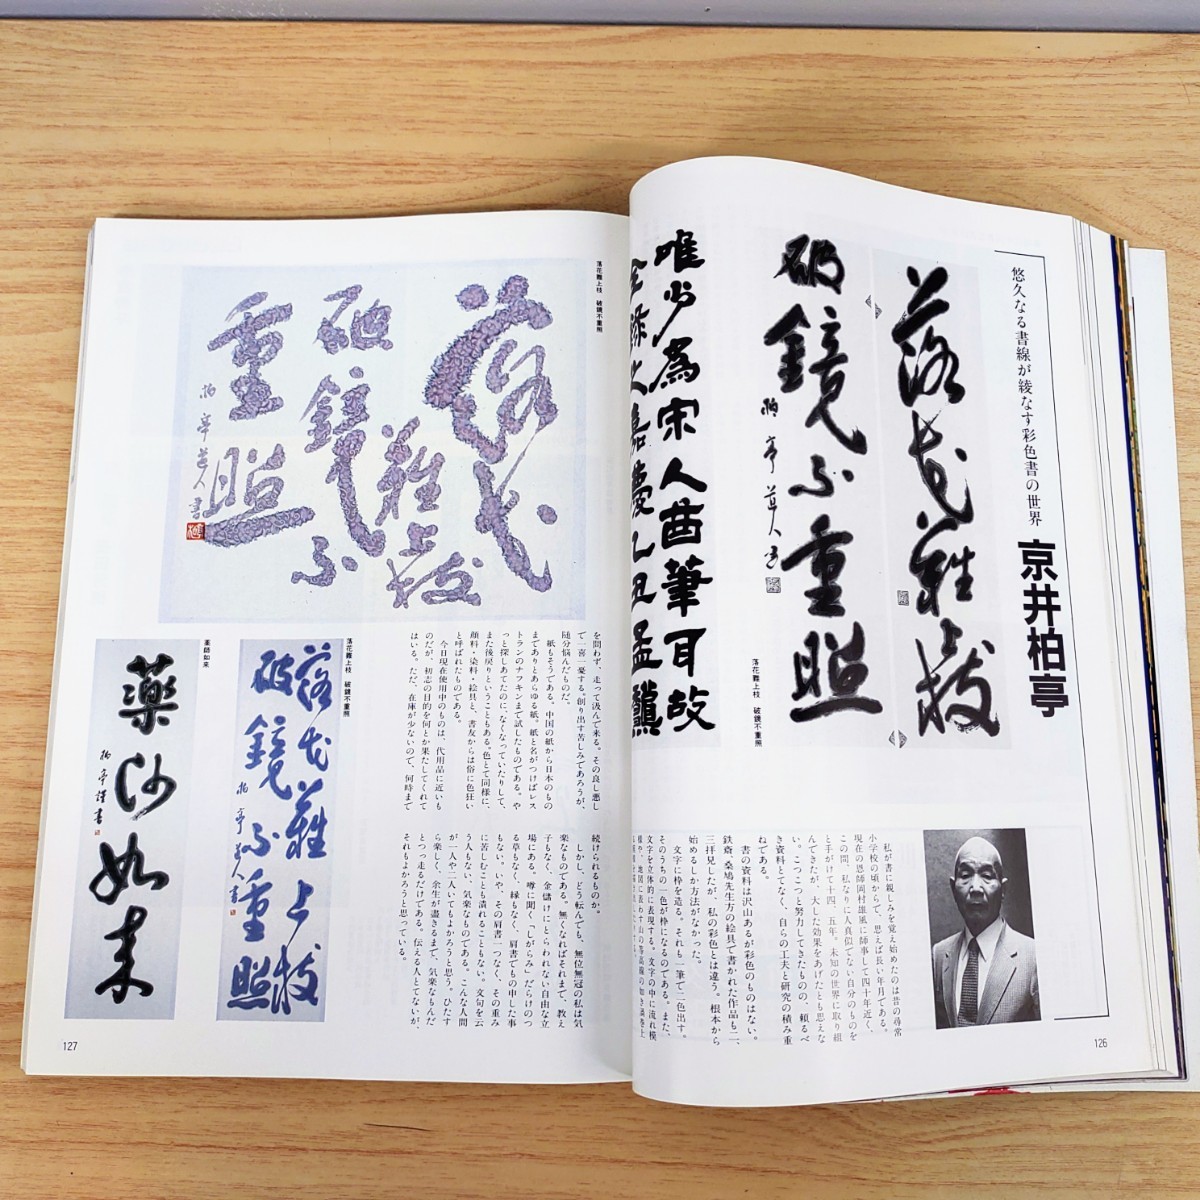 悠久なる書線が綾なす彩色書の世界
京井柏亭
落花難上枝
破鏡不重照
柏亭道人書
落花難上枝 破鏡不重照
唯少為宋人酋筆耳故
私が書に親しみを覚え始めたのは昔の尋常
小学校の頃からで、思えば長い年月である。
現在の恩師岡村雄風に師事して四十年近く、
この間、私なりに人真似でない自分のものを
と手がけて十四、五年。未知の世界に取り組
んできたが、大した効果をあげたとも思えな
い。こつこつと努力してきたものの、頼るべ
き資料とてなく、自らの工夫と研究の積み重
ねである。
書の資料は沢山あるが彩色のものはない。
鉄斎、桑鳩先生方の絵具で書かれた作品も二、
三拝見したが、私の彩色とは違う。根本から
始めるしか方法がなかった。
文字に枠を造る。それも一筆で二色出す。
そのうちの一色が枠になるのである。また、
文字を立体的に表現する。文字の中に流れ模
126
落花難上枝 破鏡不重照
落花
難上枝
破鏡不
重照
柏亭道人書
を問わず、走って汲んで来る。その良し悪し
で一喜一憂する。創り出す苦しみであろうが、
随分悩んだものだ。
紙もそうである。中国の紙から日本のもの
までありとあらゆる紙。紙と名がつけばレス
トランのナフキンまで試したものである。や
っと探しあてたのに、なくなっていたりして、
また後戻りということもある。色とて同様に、
顔料・染料・絵具と、書友からは俗に色狂い
と呼ばれたものである。
今日現在使用中のものは、代用品に近いも
のだが、初志の目的を何とか果たしてくれて
はいる。ただ、在庫が少ないので、何時まで
続けられるものか。
しかし、どう転んでも、無位無冠の私は気
楽なものである。無くなればそれまで、教え
子もなく、金儲けにとらわれない自由な立
場にある。噂に聞く「しがらみ」だらけのつ
る草もなく、縁もなく、肩書でもの申した事
もない。いや、その肩書一つなく、その重み
に苦しむことも潰れることもない。文句を云
う人もない、気楽なものである。こんな人間
が一人や二人いてもよかろうと思う。ひたす
ら楽しく、余生が盡きるまで、気楽なもんだ
とつっ走るだけである。伝える人とてないが、
それもよかろうと思っている。
落花難上枝 破鏡不重照
落花難上枝
破鏡不重照
柏亭道人書
薬師如来
柏亭謹書
127